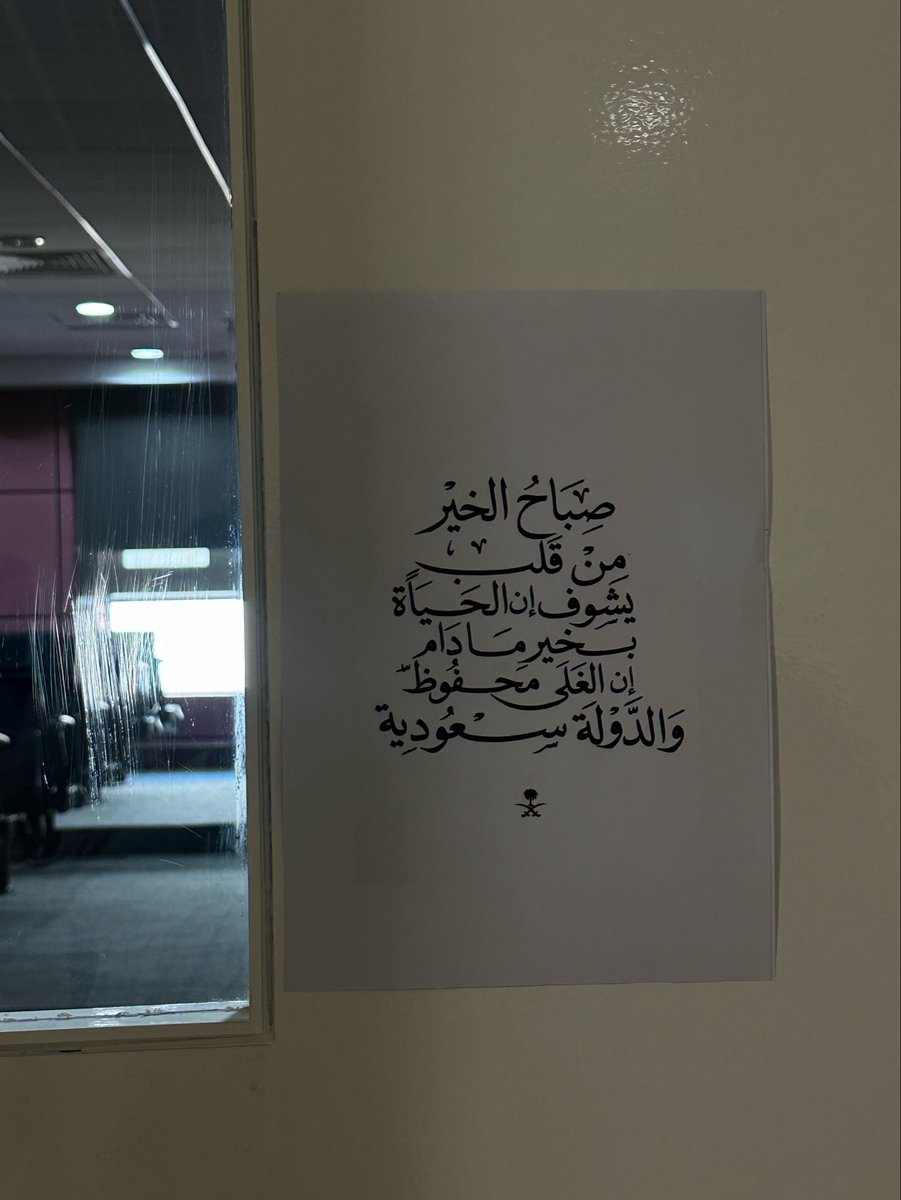 صِبَاحُ الخيْر
مِنْ قَلب
يشَوِف إن الحَيَاة
بخير مَا دَام
إن الغَلَى مَحفُوظ
وَالدَّوْلَة سِعُودِية